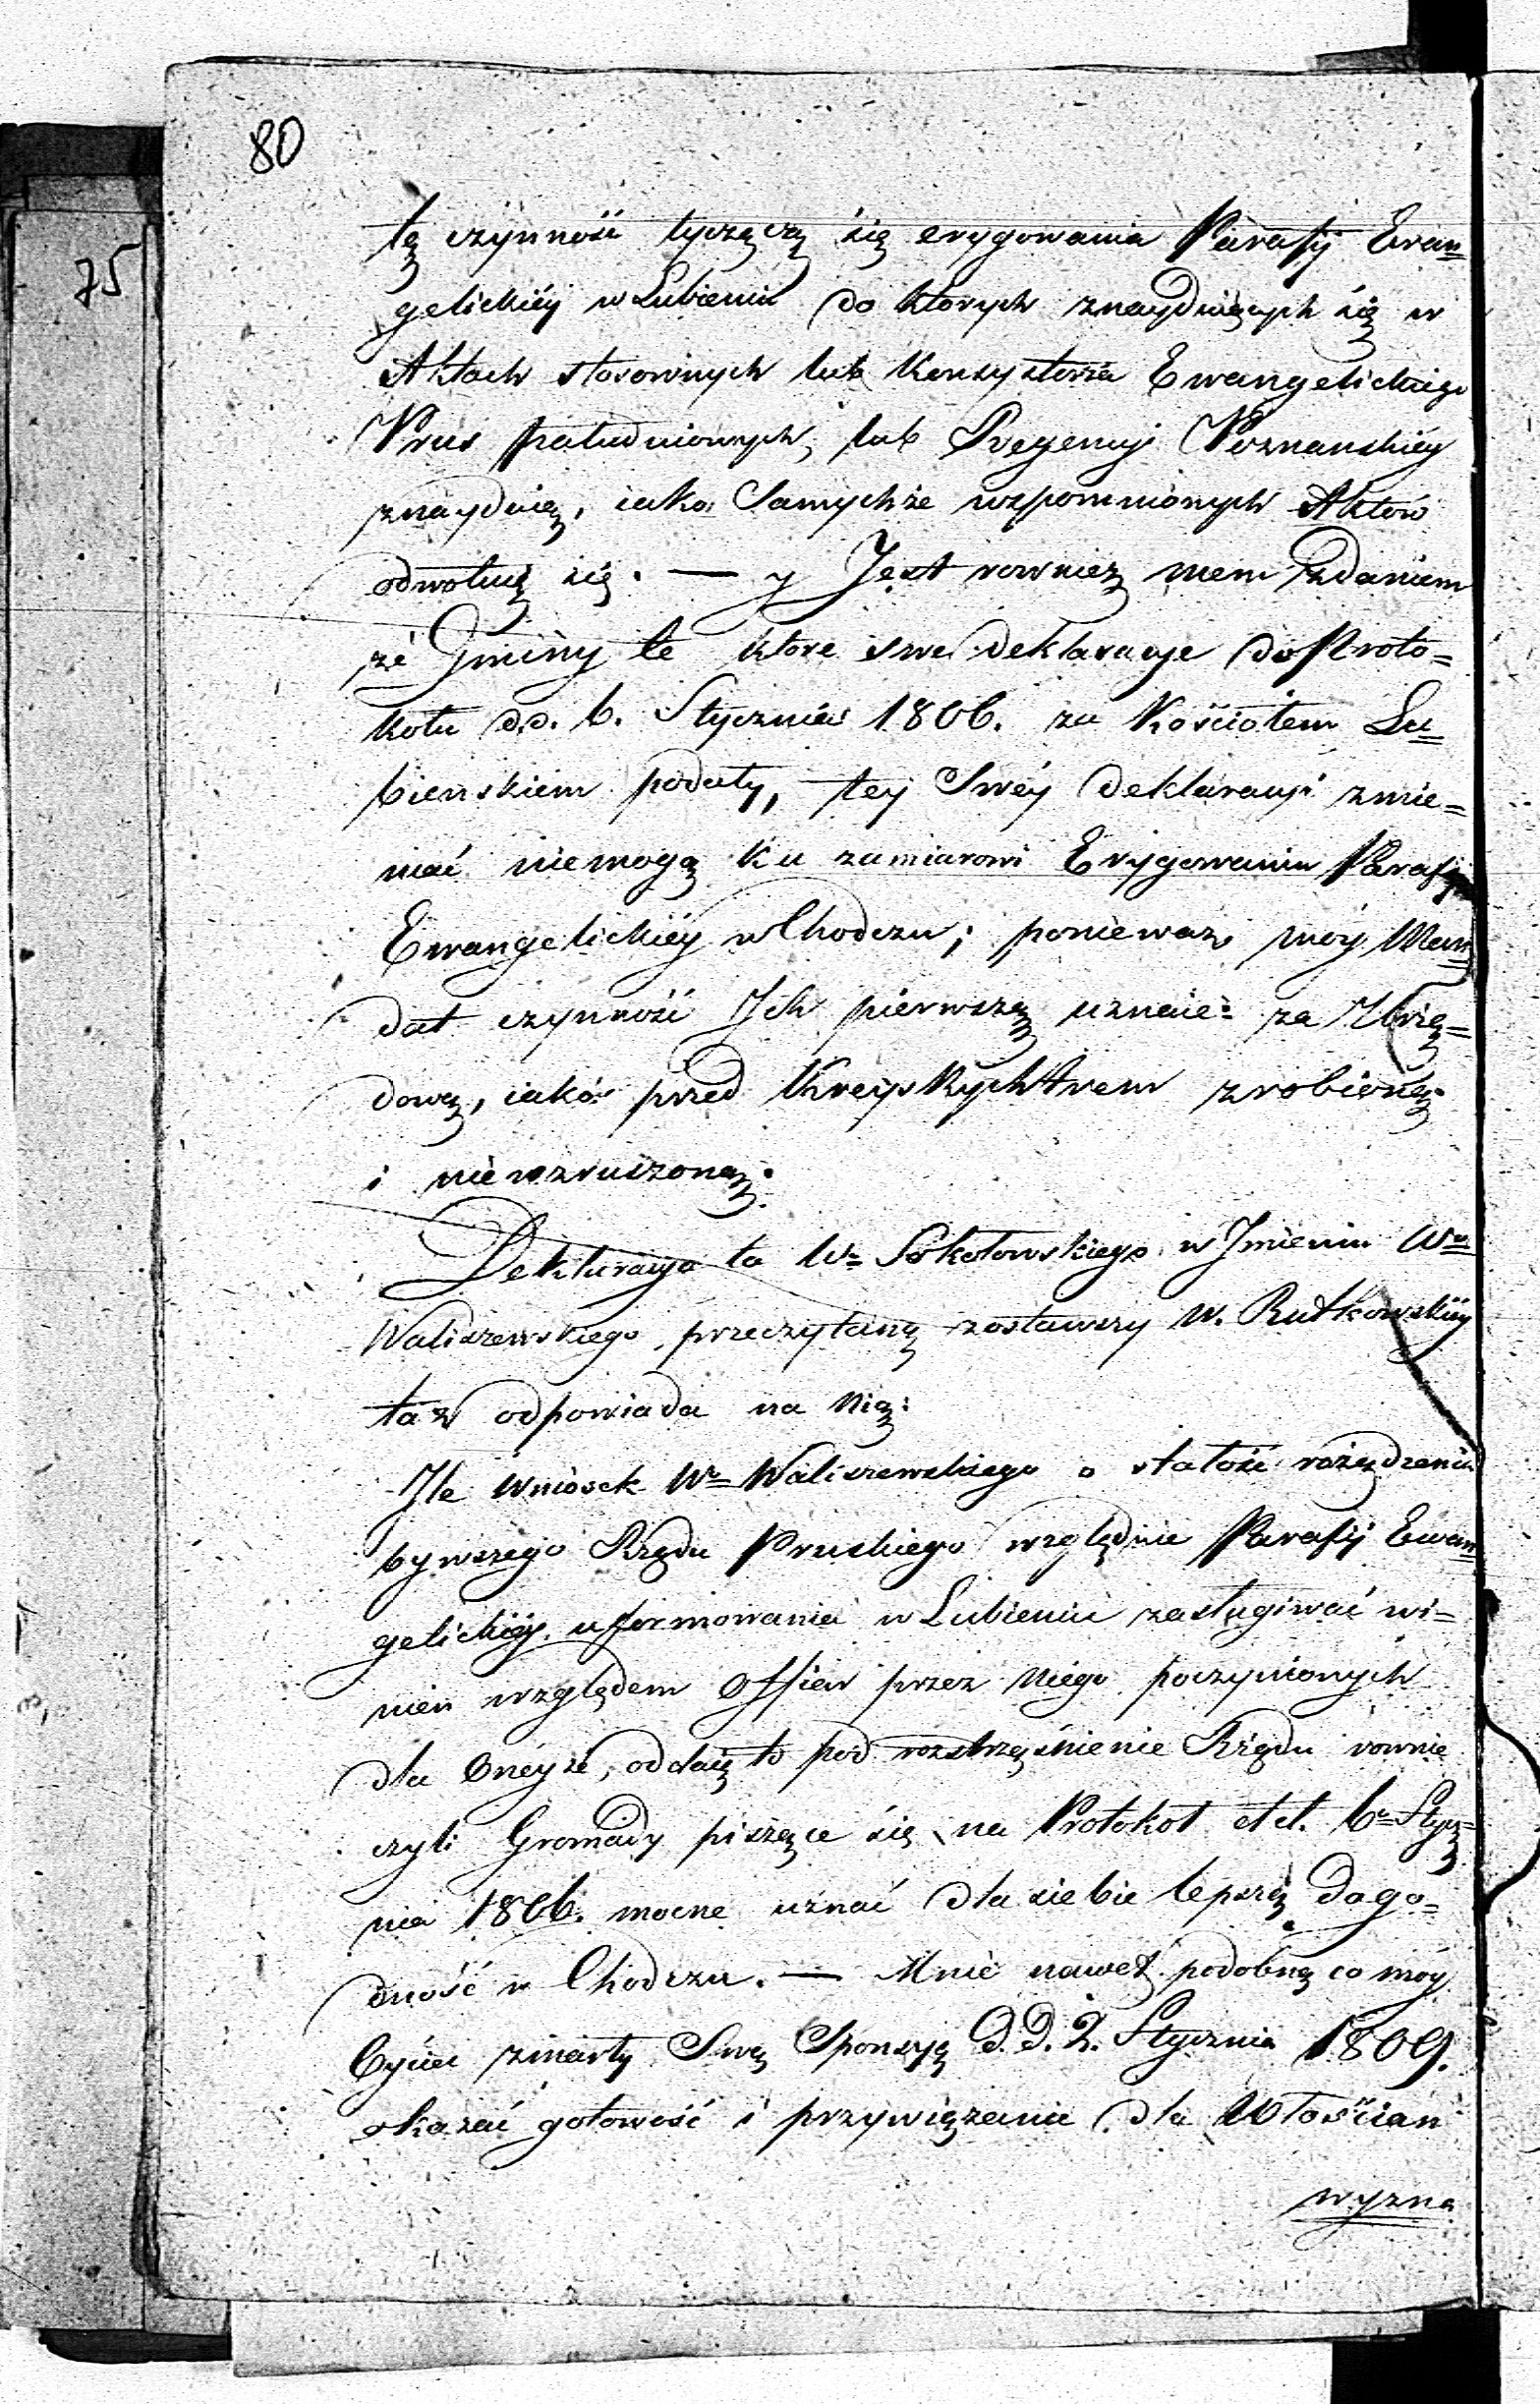 80
75
tę czynność tyczącą się erygowania Parafij Ewan=
gelickiéy w Lubieniu do ktorych znayduiących się w
Aktach stosownych lub Konsystorza Ewangelickiego
Prus południowych, lub Regencyi Poznanskiéy
znayduią, iako Samychże wzpomnionych Aktów
odwołuię się. — y Jest rownież mem żądaniem
że Gminy te ktore swe deklaracye do Proto=
kołu d.d. 6. Stycznia 1806. za Kościołem Lu=
bienskiem podały, tey Swéy deklaracyi zmie=
niać niemogą ku zamiarowi Erygowaniu Parafij
Ewangelickiéy w Chodczu; ponieważ móy Man=
dat czynność Ich pierwszą uznaie za Urzę=
dową, iako przed Kreysrychtrem zrobioną
i niewzruszoną.
Deklaracya ta Wo Sokołowskiego w Jmieniu Wo
Waliszewskiego przeczytaną zostawszy W. Rutkowskiéy
taż odpowiada na nią:
Ile wniosek Wo Waliszewskiego o stałość rożądzenia
bywszego Rządu Pruskiego względnie Parafij Ewan=
gelickiéy uformowania w Lubieniu zasługiwać wi=
nien względem offiar przez niego poczynionych
dla Onéyże, oddaię to pod rozstrząśnienie Rządu rownie
czyli Gromady pisząće się na Protokoł et ct. 6o Stycz=
nia 1806. mocne uznać dla siebie lepszą dogo=
dność w Chodczu. — Mnie nawet podobną co móy
Oyciec zmarły Swą Sponsyą d.d. 2. Stycznia 1809.
okazać gotowość i przywiązanie dla Włościan
wyzna